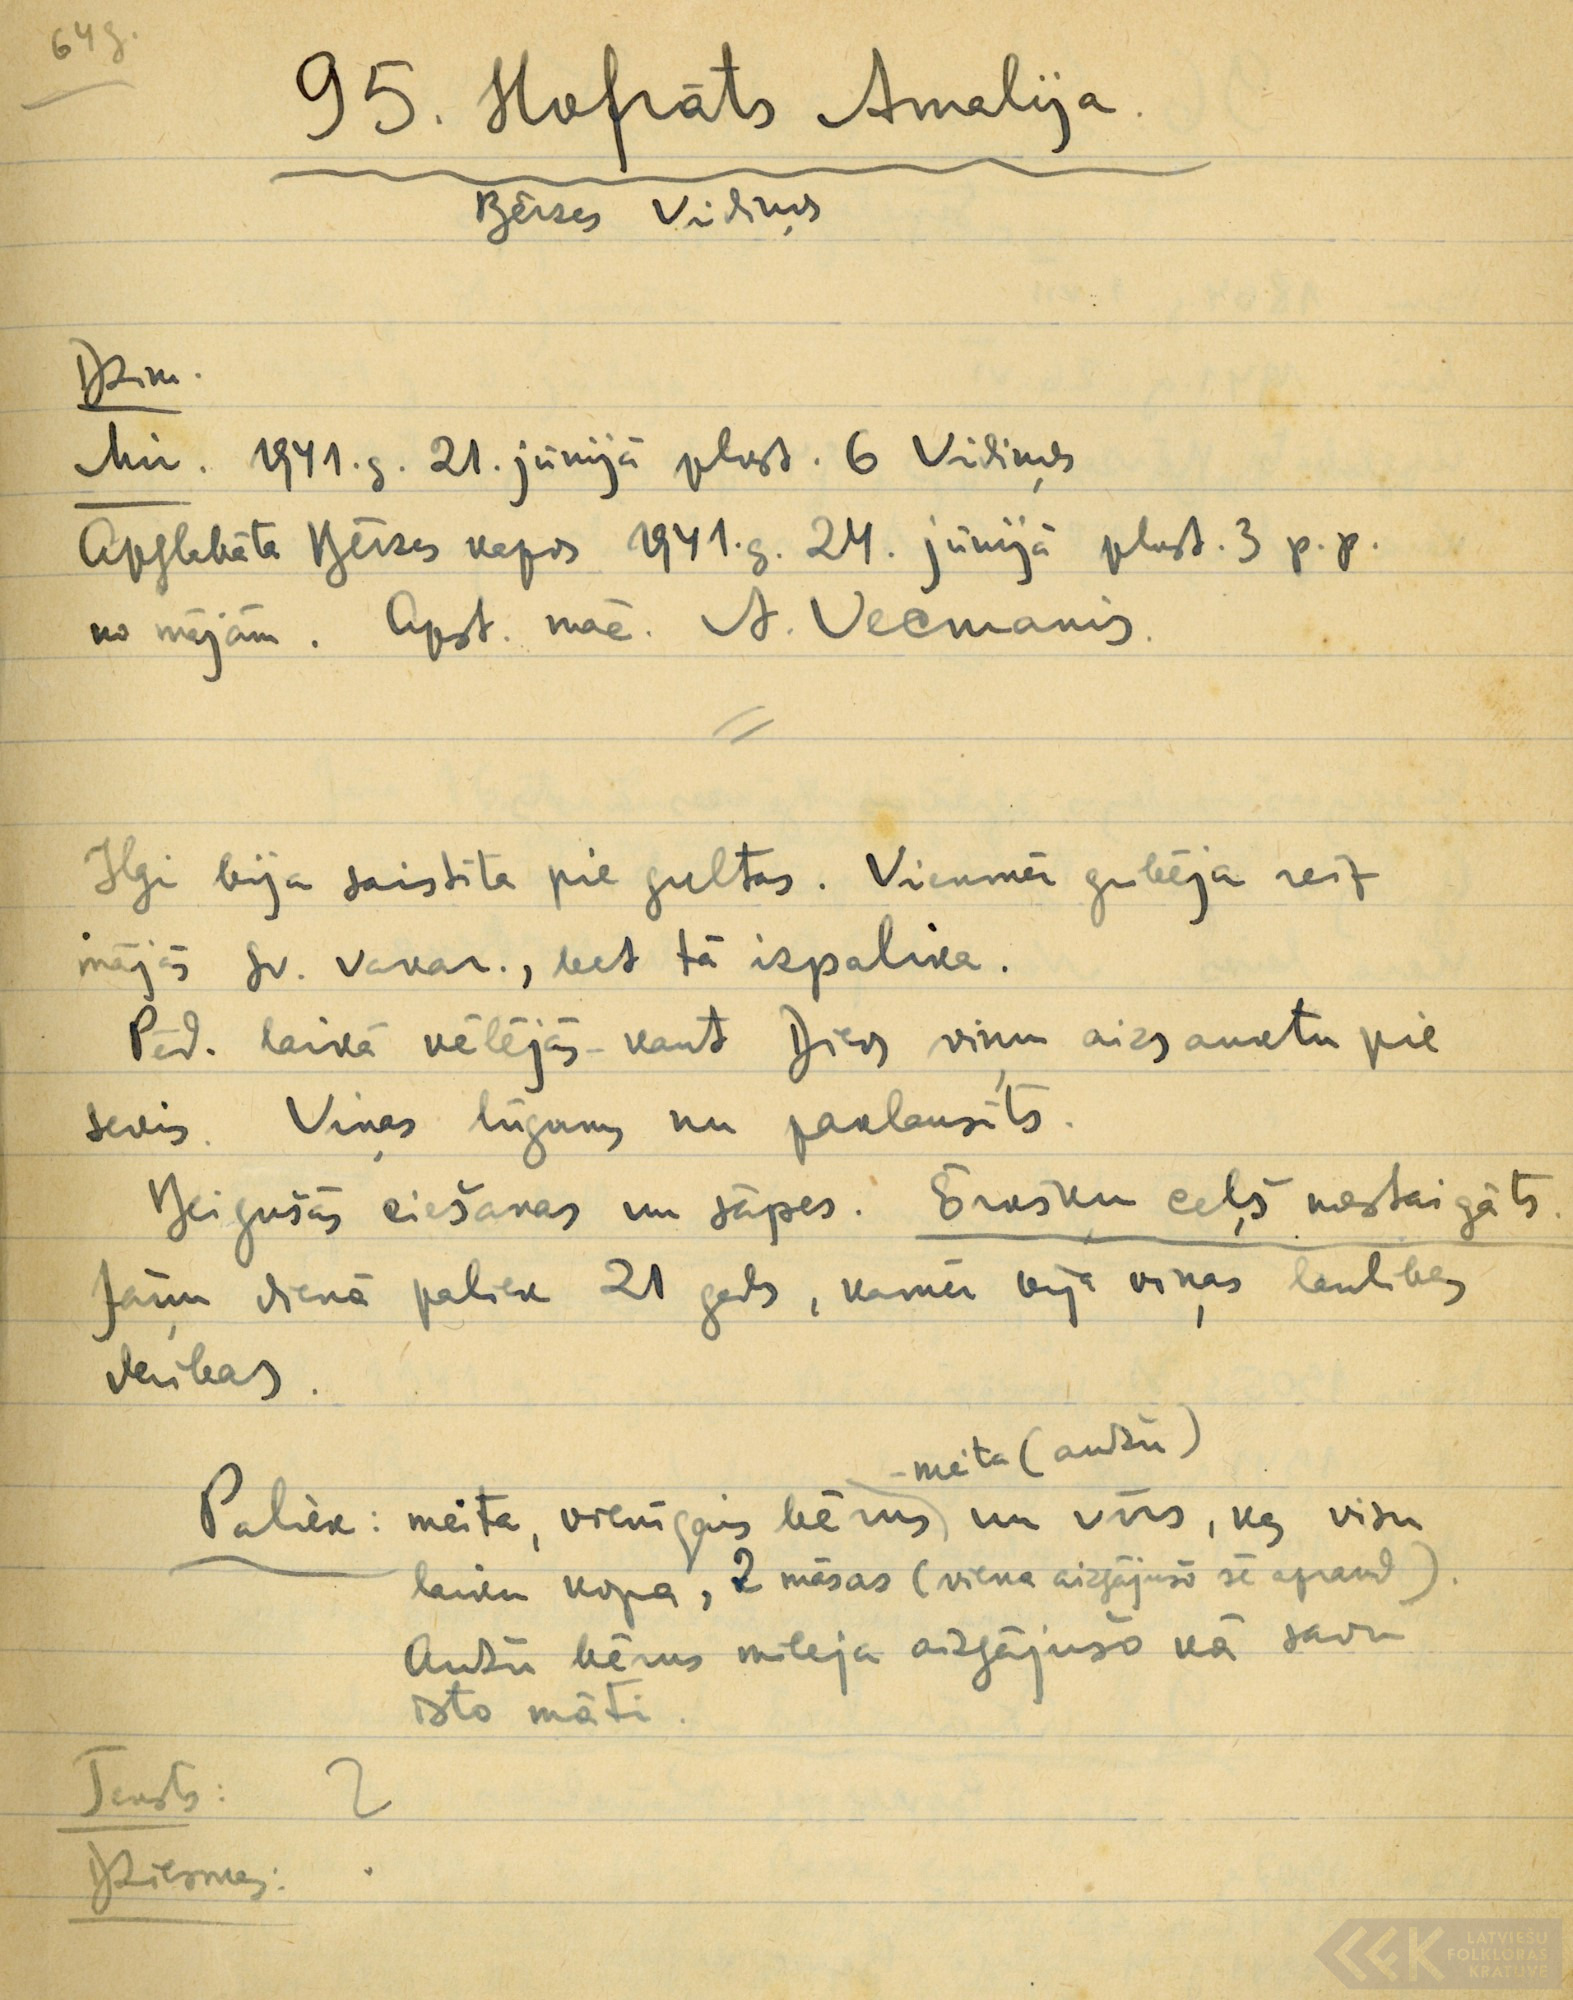 64 g.
95. Hofrāts Amalija.
Bērzes Vidiņos
Dzim.
Mir. 1941.g. 21. jūnijā plkst. 6 Vidiņos
Apglabāta Bērzes kapos 1941.g. 24. jūnijā plkst. 3 p.p.
no mājām. Apst. māc. A. Vecmanis.
Ilgi bija saistīta pie gultas. Vienmēr gribēja reiz
mājās sv. vakar., bet tā izpalika.
Pēd. laikā vēlējās - kaut Dievs viņu aizsauktu pie
sevis. Viņas lūgums nu paklausīts.
Beigušās ciešanas un sāpes. Ērkšķu ceļš nostaigāts.
Jāņu dienā paliek 21 gads, kamēr bija viņas laulības
derības.
- meita (audžu)
Paliek: meita, vienīgais bērns) un vīrs, kas visu
laiku kopa, 2 māsas (viena aizgājušo še aprand).
Audžu bērns mīlēja aizgājušo kā savu
īsto māti.
Teksts: 2
Dziesmas:
LATVIEŠU
FOLKLORAS
KRATUVE